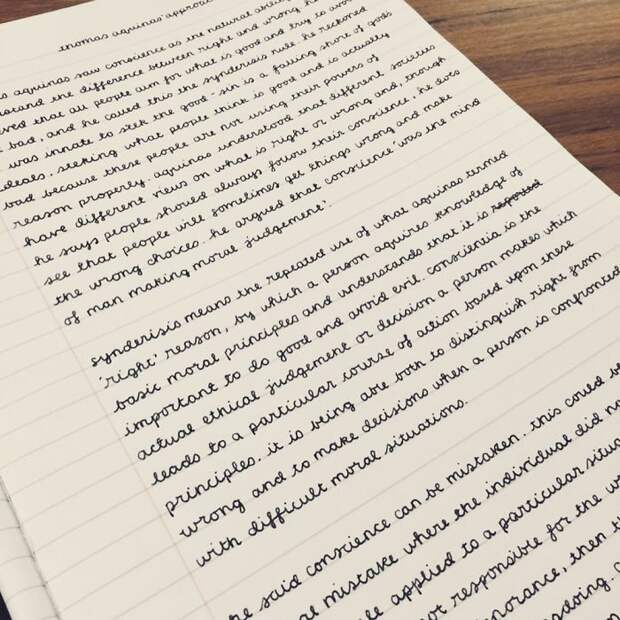 thomas aquinas' approa
aquinas saw conscience as the natural ability
the difference between right and wrong. he
that all people aim for what is good and try to avoi
bad, and he called this the synderisis rule. he reckoned
was innate to seek the good - sin is a falling short of gods
ideals, seeking what people think is good and is actually
bad because these people are not using their powers of
reason properly. aquinas understood that different societies
have different views on what is right or wrong and, though
he says people should always follow their conscience, he does
see that people will sometimes get things wrong and make
the wrong choices. he argued that conscience 'was the mind
of man making moral judgement'.
synderisis means the repeated use of what aquinas termed
'right' reason, by which a person aquires knowledge of
basic moral principles and understands that it is
important to do good and avoid evil. conscientia is the
actual ethical judgement or decision a person makes which
leads to a particular course of action based upon these
principles. it is being able both to distinguish right from
wrong and to make decisions when a person is confronted
with difficult moral situations.
he said conscience can be mistaken. this could be
mistake where the individual did no
applied to a particular situa
not responsible for the w
ignorance, then th